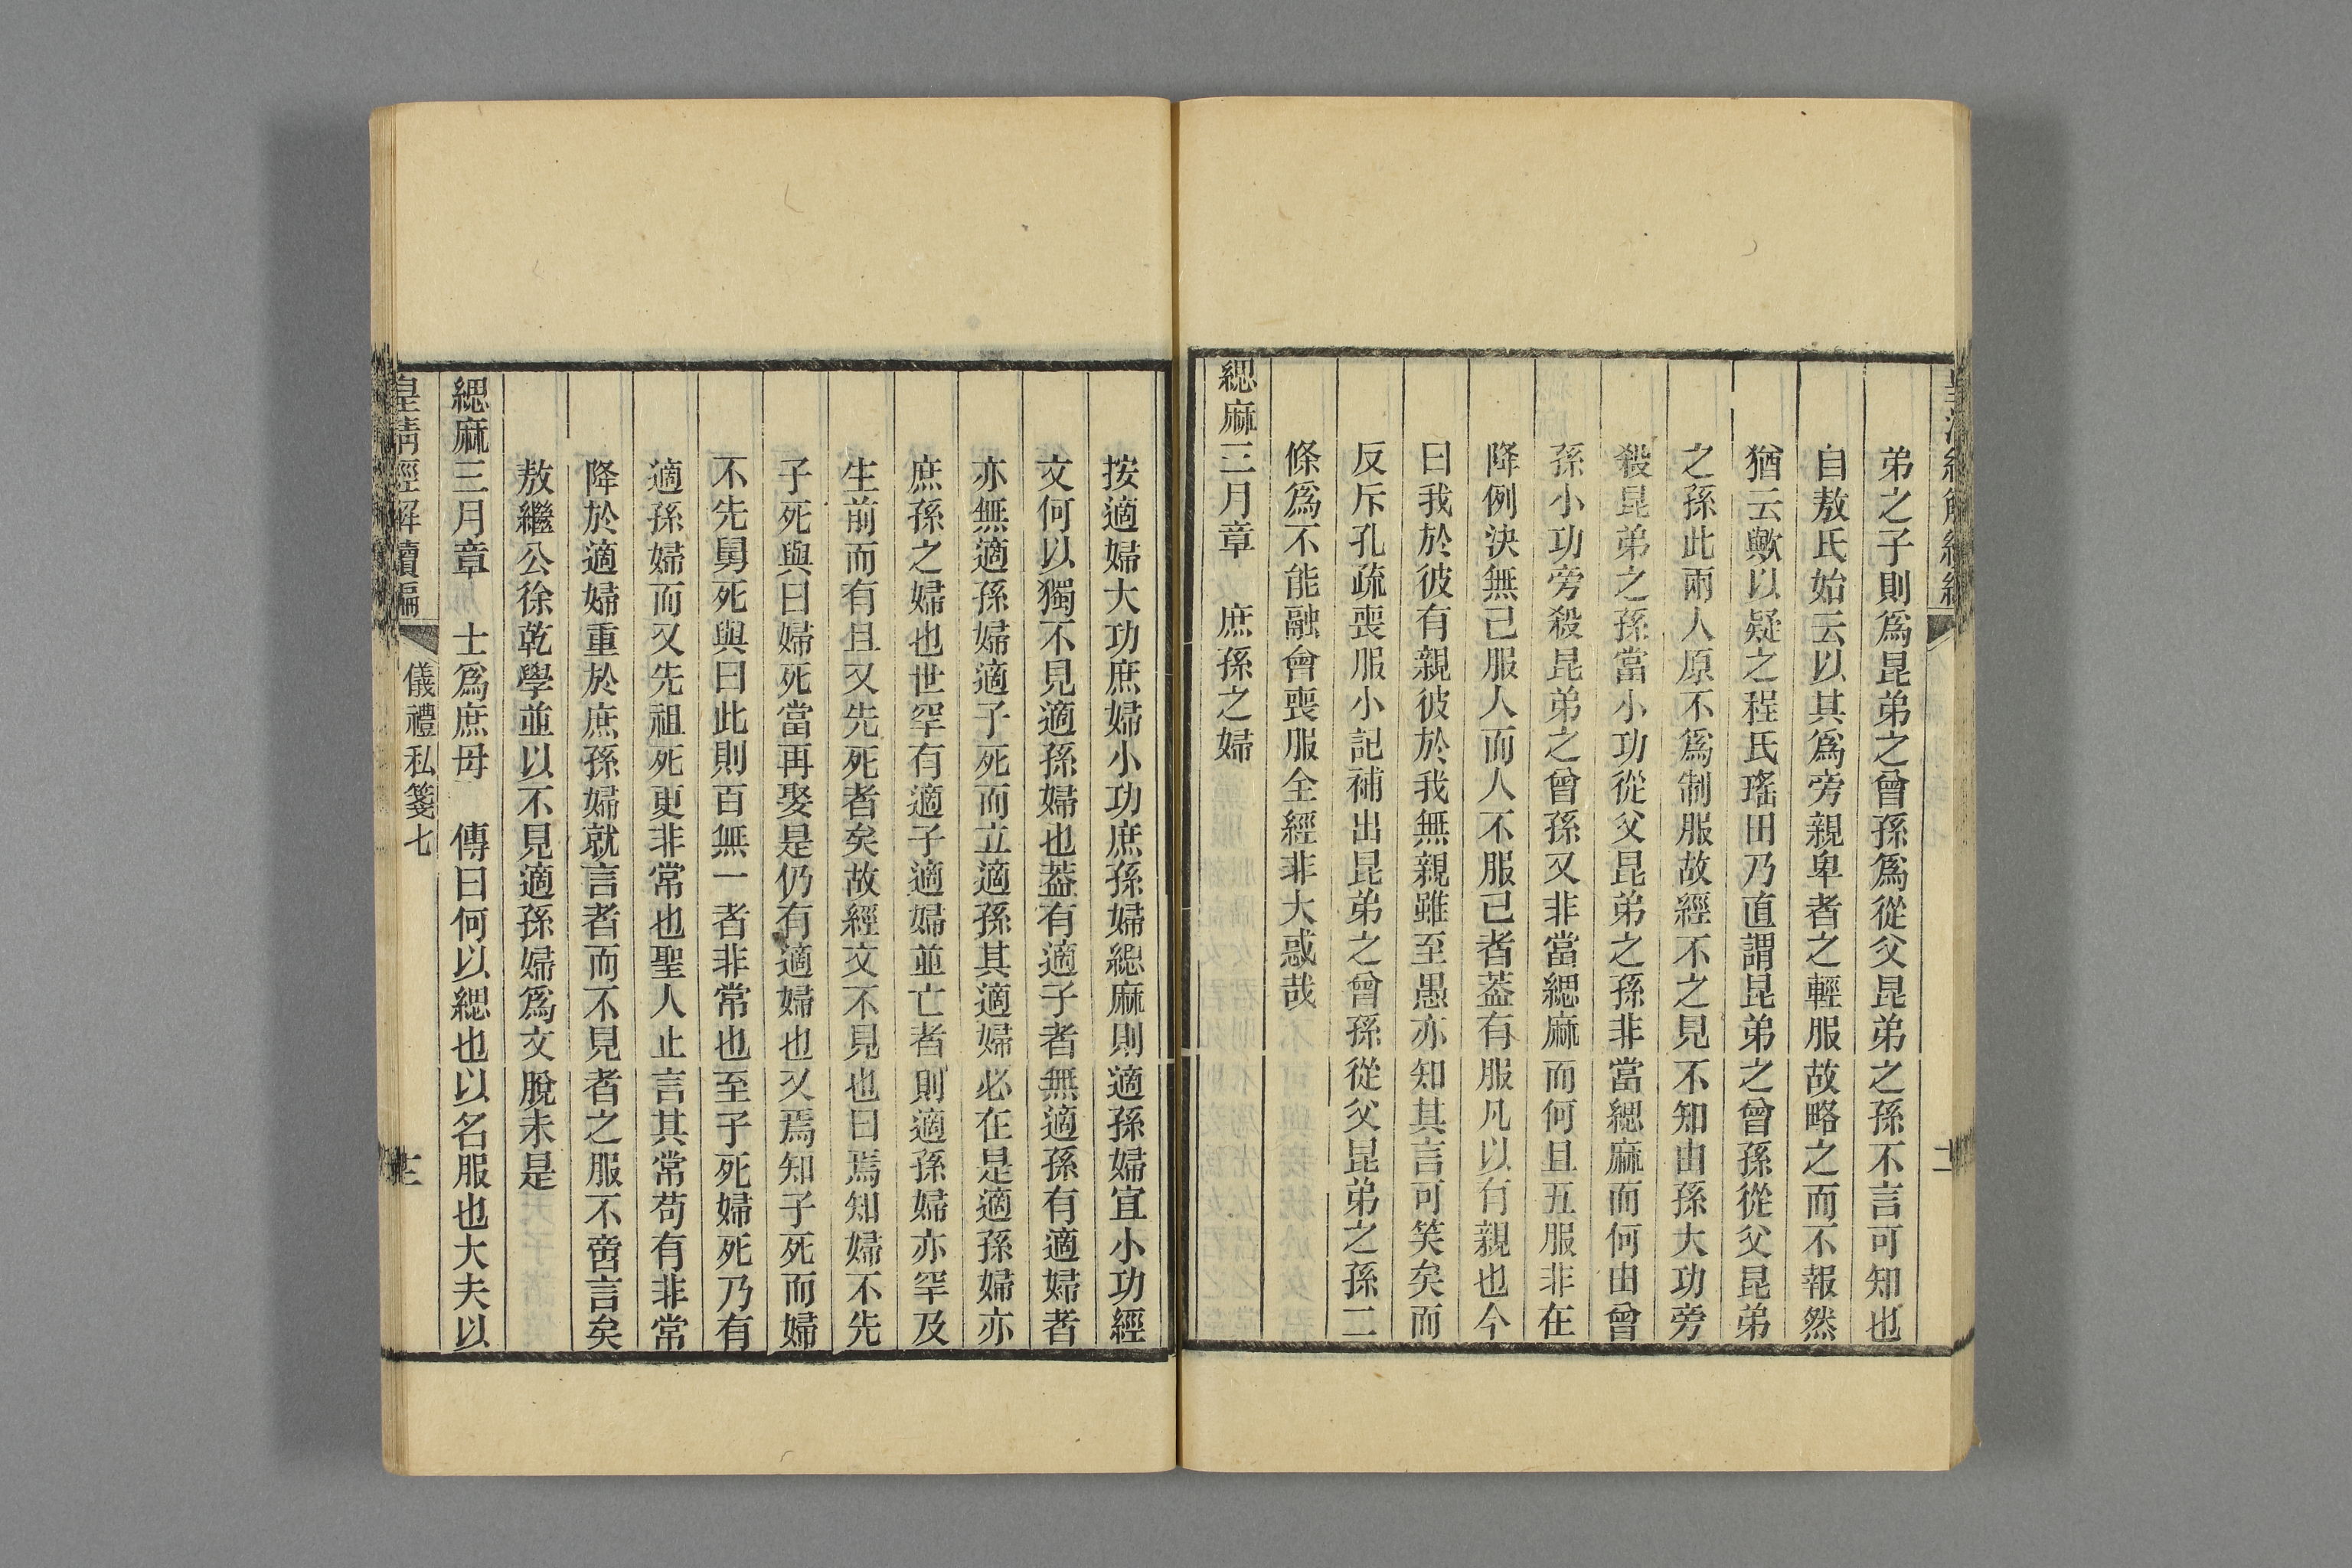 弟之子則爲昆弟之曾孫爲從父昆弟之孫不言可知也
自敖氏始云以其爲旁親卑者之輕服故略之而不報然
猶云歟以疑之程氏瑤田乃直謂昆弟之曾孫從父昆弟
之孫此兩人原不爲制服故經不之見不知由孫大功旁
殺昆弟之孫當小功從父昆弟之孫非當緦麻而何由曾
孫小功旁殺昆弟之曾孫又非當緦麻而何且五服非在
降例決無己服人而人不服己者葢有服凡以有親也今
曰我於彼有親彼於我無親雖至愚亦知其言可笑矣而
反斥孔疏喪服小記補出昆弟之曾孫從父昆弟之孫二
條爲不能融會喪服全經非大惑哉
緦麻三月章　庶孫之婦
按適婦大功庶婦小功庶孫婦緦麻則適孫婦宜小功經
文何以獨不見適孫婦也葢有適子者無適孫有適婦者
亦無適孫婦適子死而立適孫其適婦必在是適孫婦亦
庶孫之婦也世罕有適子適婦並亡者則適孫婦亦罕及
生前而有且又先死者矣故經文不見也曰焉知婦不先
子死與曰婦死當再娶是仍有適婦也又焉知子死而婦
不先舅死與曰此則百無一者非常也至子死婦死乃有
適孫婦而又先祖死更非常也聖人止言其常苟有非常
降於適婦重於庶孫婦就言者而不見者之服不啻言矣
敖繼公徐乾學並以不見適孫婦爲文脫未是
緦麻三月章　士爲庶母　傳曰何以緦也以名服也大夫以
皇清經解續編　儀禮私箋七